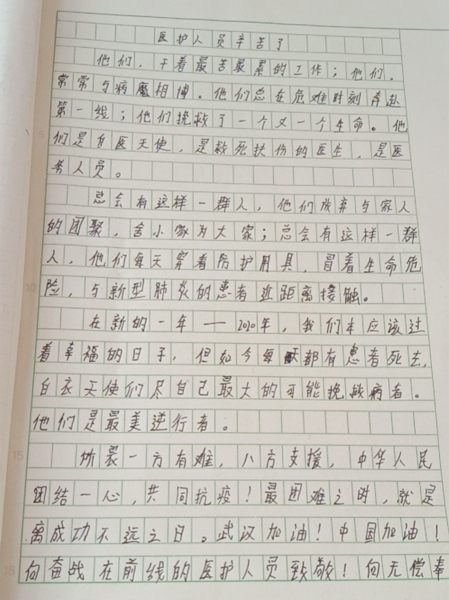 医护人员辛苦了
他们，干着最苦最累的工作；他们，
常常与病魔相搏。他们总在危难时刻奔赴
第一线；他们挽救了一个又一个生命。他
们是白衣天使，是救死扶伤的医生，是医
务人员。
总会有这样一群人，他们放弃与家人
的团聚，舍小家为大家；总会有这样一群
人，他们每天穿着防护用具，冒着生命危
险，与新型肺炎的患者近距离接触。
在新的一年——2020年，我们本应该过
着幸福的日子，但如今每天都有患者死去，
白衣天使们尽自己最大的可能挽救病者。
他们是最美逆行者。
一方有难，八方支援，中华人民
团结一心，共同抗疫！最困难之时，就是
离成功不远之日。武汉加油！中国加油！
向奋战在前线的医护人员致敬！向无偿奉
15
18